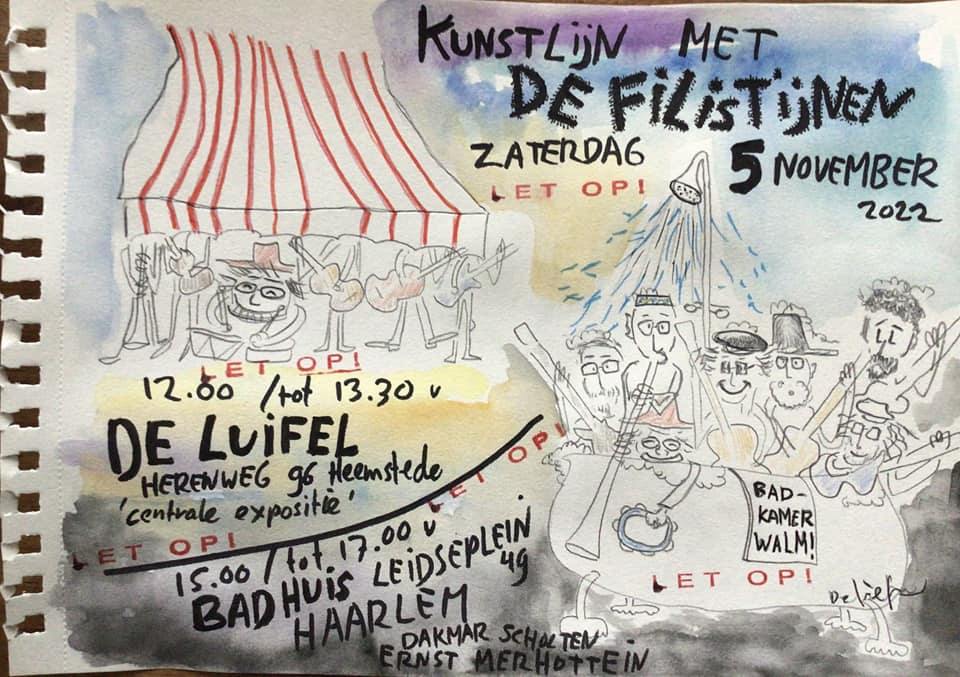 KUNSTLIJN MET
DE FILISTIJNEN
ZATERDAG
5 NOVEMBER
2022
LET OP!
LET OP!
12.00 / tot 13.30 u
DE LUIFEL
HERENWEG 96 Heemstede
'centrale expositie'
LET OP!
LET OP!
15.00 / tot 17.00 u
BADHUIS LEIDSEPLEIN
49
HAARLEM
DAKMAR SCHOLTEN
ERNST MERHOTTEIN
BAD-
KAMER
WALM!
LET OP!